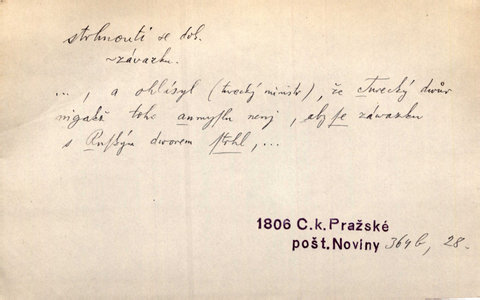 strhnouti se dok.
~závazku.
..., a ohlásyl (turecký ministr), že Turecký dwůr
nigakž toho aumyslu nenj, aby se záwazku
s Ruským dworem strhl, ...
1806 C.k.Pražské
pošt.Noviny 364b, 28.